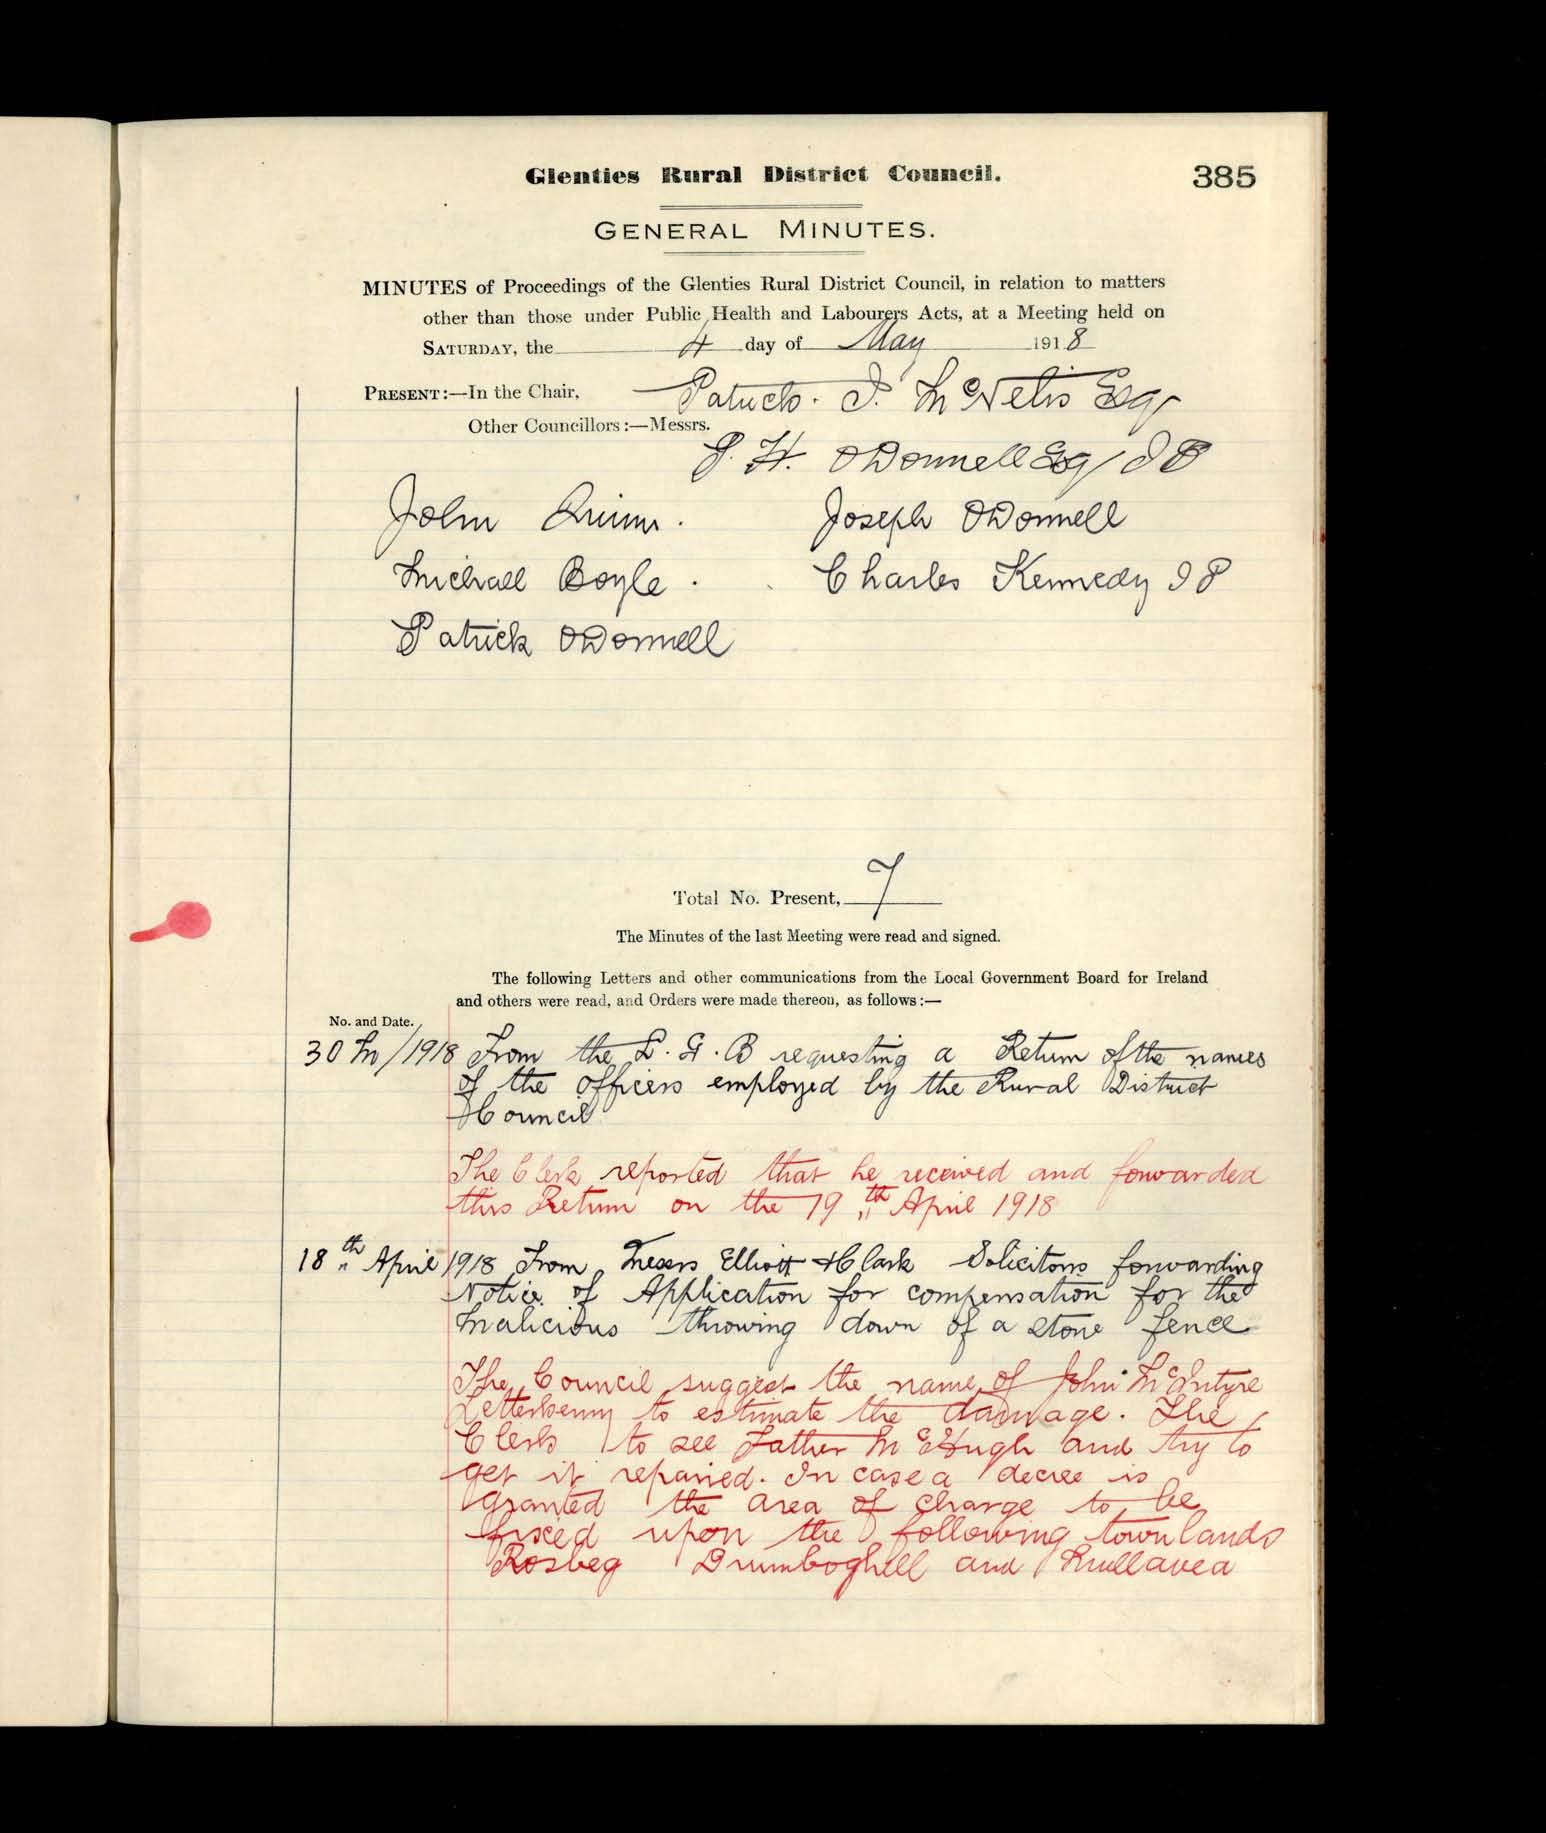 Glenties Rural District Council.
385
GENERAL MINUTES.
MINUTES of Proceedings of the Glenties Rural District Council, in relation to matters
other than those under Public Health and Labourers Acts, at a Meeting held on
SATURDAY, the 4 day of May 1918
PRESENT:—In the Chair, Patrick. J. McNelis Esqr
Other Councillors:—Messrs.
P. H. O'Donnell Esq J P
John Quinn. Joseph O'Donnell
Michael Boyle. Charles Kennedy J P
Patrick O'Donnell
Total No. Present, 7
The Minutes of the last Meeting were read and signed.
The following Letters and other communications from the Local Government Board for Ireland
and others were read, and Orders were made thereon, as follows:—
No. and Date.
30 M/1918 From the L. G. B requesting a Return of the names
of the officers employed by the Rural District
Council
The Clerk reported that he received and forwarded
this Return on the 19th April 1918
18th April 1918 From Messrs Elliott & Clark Solicitors forwarding
Notice of Application for compensation for the
Malicious throwing down of a stone fence
The Council suggest the name of John McIntyre
Letterkenny to estimate the damage. The
Clerk to see Father McHugh and try to
get it repaired. In case a decree is
granted the area of charge to be
fixed upon the following townlands
Rosbeg Drumboghill and Mullavea